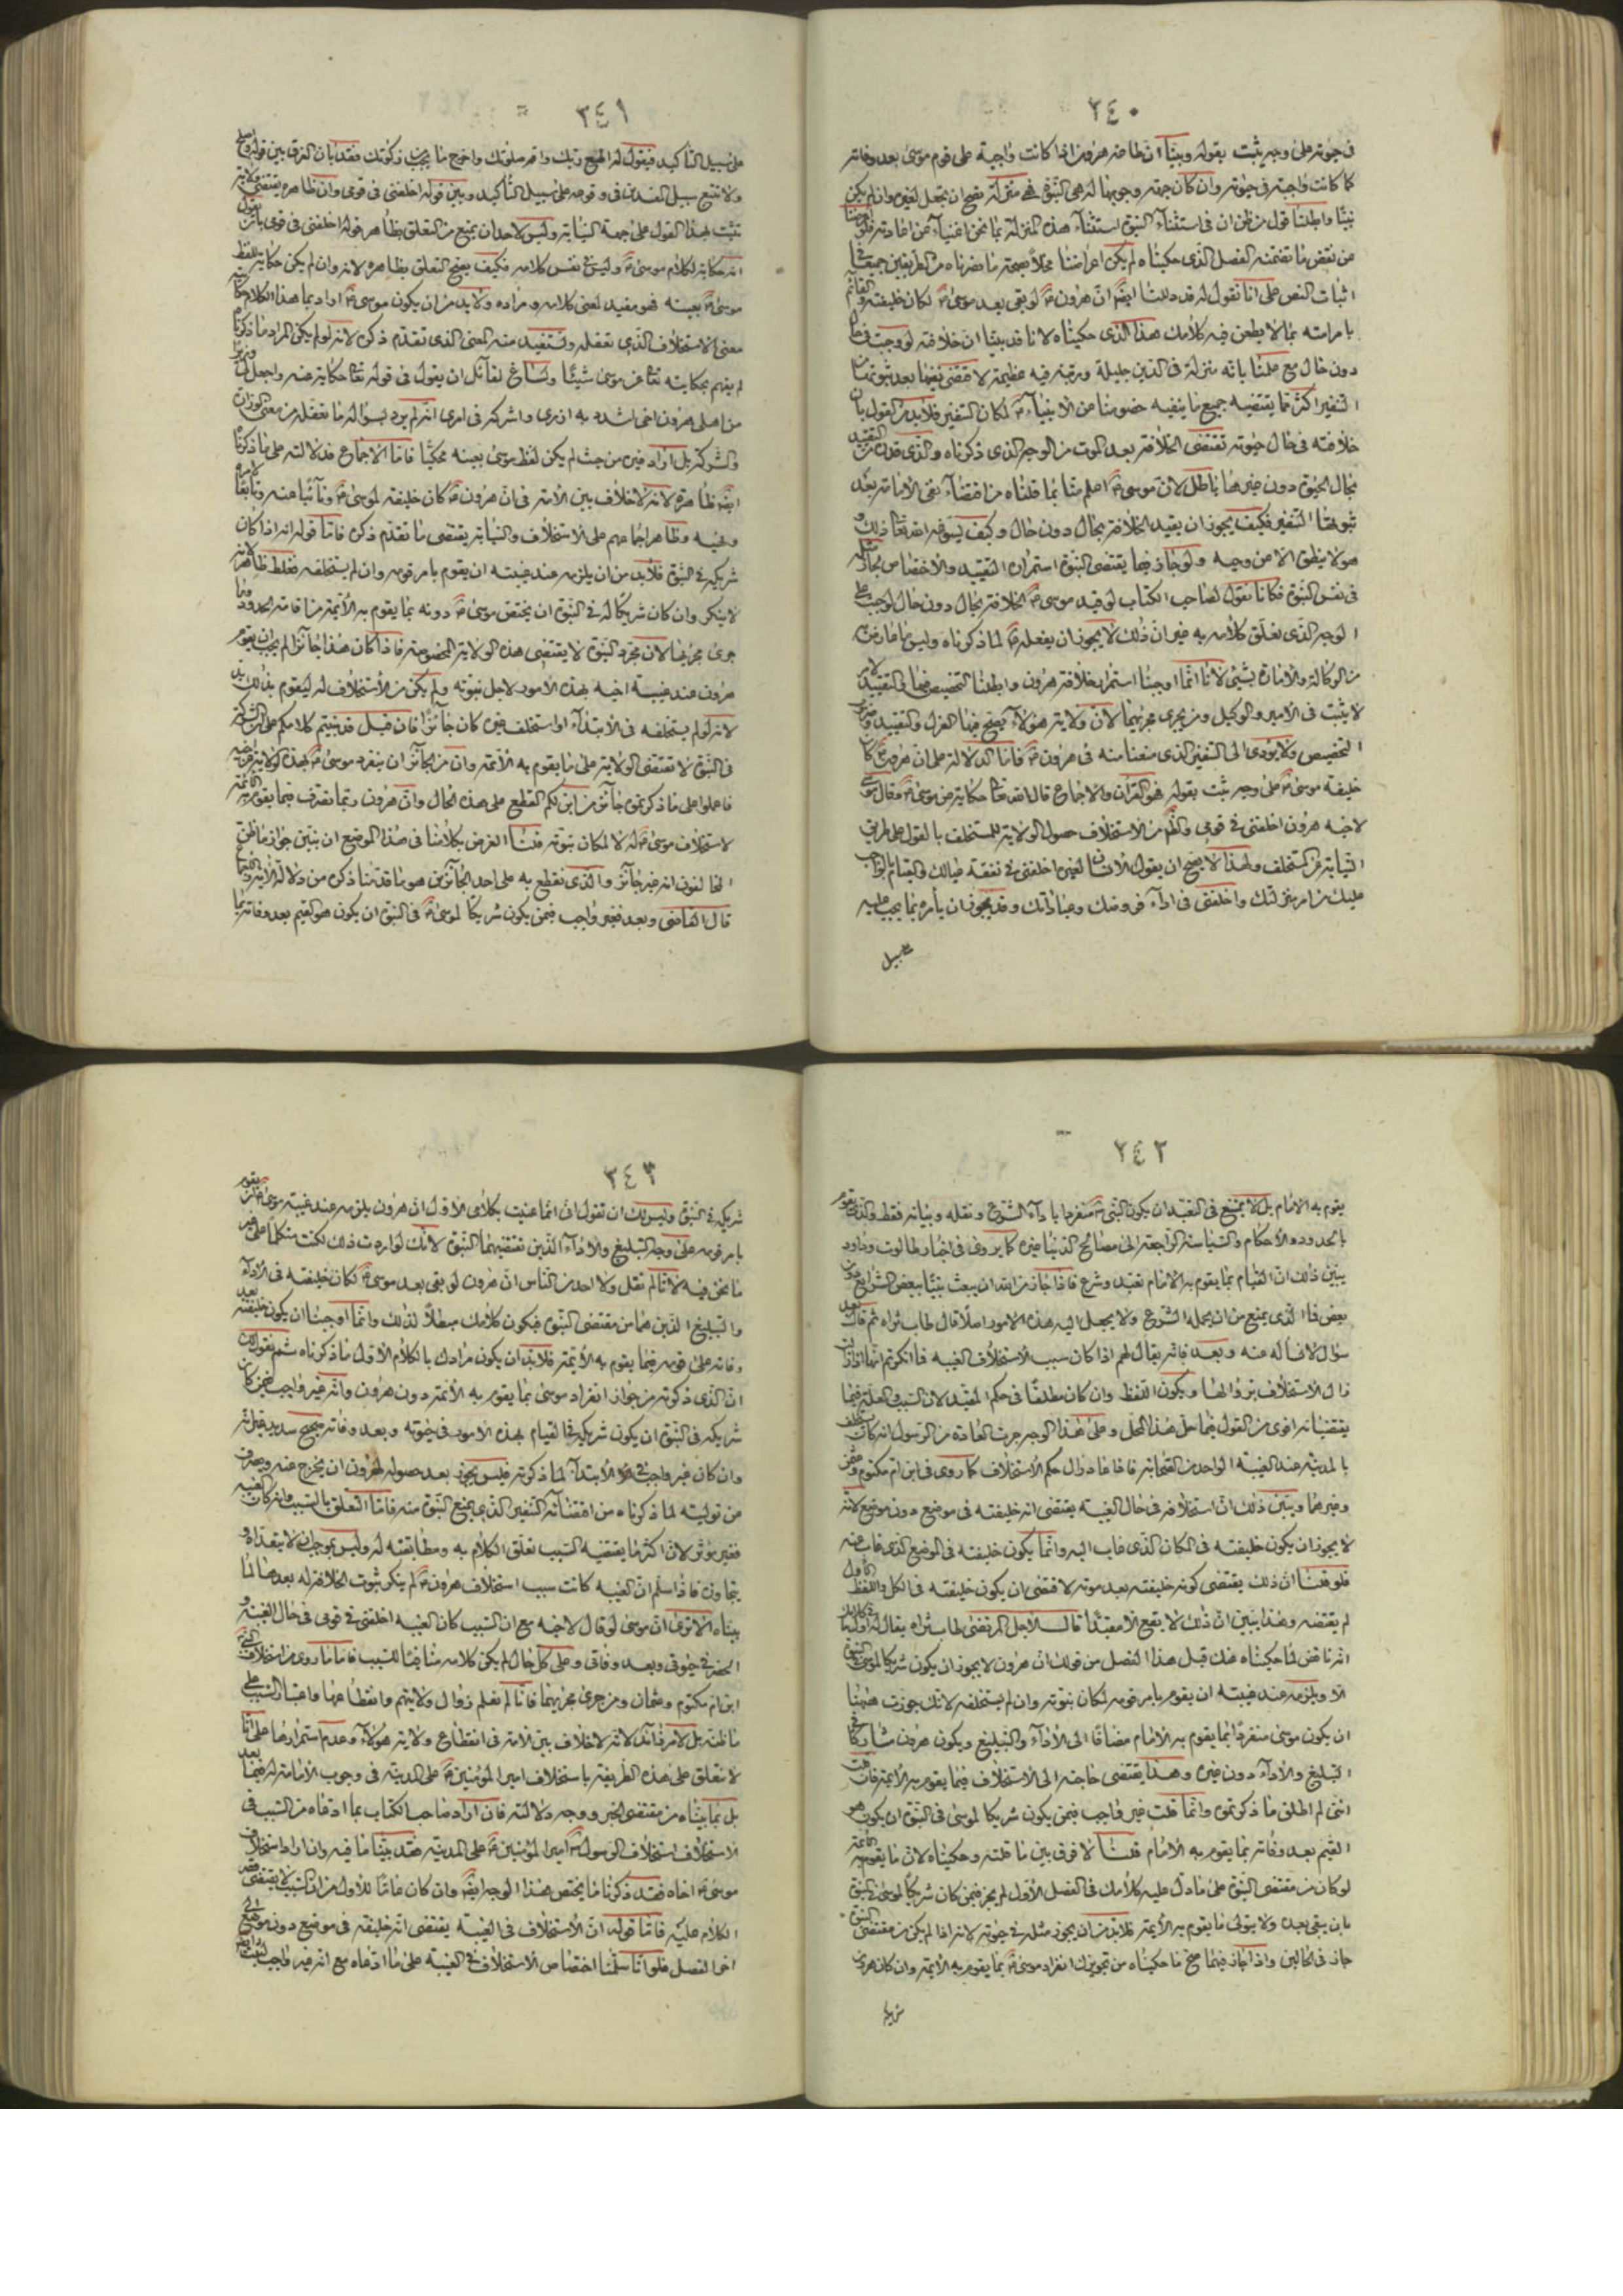 ٢٤٠
فى حيوته على وجه يثبت بقوله وبينا ان طاعة هرون اذا كانت واجبة على قوم موسى بعد وفاته
كما كانت واجبة فى حيوته وان كان جهة وجوبها له هى النبوة فهى منزلة يصح ان يجعل لغيره وان لم يكن
نبيا وابطلنا قول من ظن ان فى استثناء النبوة استثناء هذه المنزلة بما نحن اغنياء عن اعادته فلو
من نقض ما تضمنه الفصل الذى حكيناه لم يكن اعراضنا مخلا بصحة ما نصرناه من الطريقين جميعا فى
اثبات النص على انا نقول له قد دللنا ايضا ان هرون لو بقى بعد موسى لكان خليفته والقائم
بامر امته بما لا يطعن فيه كلامك هذا الذى حكيناه لانا قد بينا ان خلافته لو وجبت فى حال
دون حال مع علمنا بانه منزلة فى الدين جليلة ورتبة فيه عظيمة لاقتضى نفيها بعد ثبوتها من
التنفير اكثر مما يقتضيه جميع ما ينفيه خصومنا عن الانبياء لكان التنفير فلابد من القول بان
خلافته فى حال حيوته تقتضى الخلافة بعد الموت من الوجه الذى ذكرناه والذى قدره من التقييد
بحال الحيوة دون غيرها باطل لان موسى اعلم منا بما قلناه من اقتضاء نفى الامامة بعد
ثبوتها التنفير فكيف يجوز ان يقيد الخلافة بحال دون حال وكيف يسوغه الله تعالى ذلك و
هو لا ينطق الا عن وحيه ولو جاز فيما يقتضى النبوة استمراره التقييد والاختصاص لجاز مثله
فى نفس النبوة فكانا نقول لصاحب الكتاب لو قيد موسى الخلافة بحال دون حال لوجب على
الوجه الذى تعلق كلامه به غير ان ذلك لا يجوز ان يفعله لما ذكرناه وليس ما عارض به
من الوكالة والامارة بشىء لانا انما اوجبنا استمرار خلافة هرون وابطلنا التخصيص فيها والتقييد لامر
لا يثبت فى الامير والوكيل ومن يجرى مجريهما لان ولاية هؤلاء يصح فيها العزل والتقييد وضروب
التخصيص ولا يؤدى الى التنفير الذى منعنا منه فى هرون فاما الدلالة على ان هرون كان
خليفة موسى على وجه يثبت بقوله فهو القران والاجماع قال الله تعالى حكاية عن موسى وقال موسى
لاخيه هرون اخلفنى فى قومى والظاهر من الاستخلاف حصول الولاية للمستخلف بالقول على طريق
النيابة عن المستخلف ولهذا لا يصح ان يقول الانسان لغيره اخلفنى فى نفقة عيالك والقيام بالواجب
عليك من امر منزلك واخلفنى فى اداء فروضك وعباداتك وقد يجوز ان يأمره بما يجب عليه
على سبيل
٢٤١
على سبيل التأكيد فيقول له اطع ربك واقم صلوتك واخرج ما يجب زكوتك فقد بان الفرق بين قوله واصلح
ولا تتبع سبيل المفسدين فى وقوعه على سبيل التأكيد وبين قوله اخلفنى فى قومى وان ظاهره يقتضى ولاية
تثبت بهذا القول على جهة النيابة وليس لاحد ان يمنع من التعلق بظاهر قوله اخلفنى فى قومى بان يقول
انه حكاية لكلام موسى وليس فى نفس كلامه فكيف يصح التعلق بظاهره لانه وان لم يكن حكاية للفظ
موسى بعينه فهو مفيد لمعنى كلامه ومراده ولابد من ان يكون موسى اراد بما هذا الكلام حكاية
معنى الاستخلاف الذى نعقله ونستفيد منه المعنى الذى تقدم ذكره لانه لو لم يكن المراد ما ذكرنا
لم يفهم بحكايته تعالى عن موسى شيئا ولساغ لقائل ان يقول فى قوله تعالى حكاية عنه واجعل لى وزيرا
من اهلى هرون اخى اشدد به ازرى واشركه فى امرى انه لم يرد بسؤاله ما نعقله من معنى الوزارة
والشركة بل اراد غيره من حيث لم يكن لفظ موسى بعينه محكيا فاما الاجماع فدلالته على ما ذكرناه
ايضا ظاهرة لانه لا خلاف بين الامة فى ان هرون كان خليفة لموسى ونائبا عنه وتابعا لامره
ونهيه وظاهر اجماعهم على الاستخلاف والنيابة يقتضى ما تقدم ذكره فاما قوله انه اذا كان
شريكه فى النبوة فلابد من ان يلزمه عند غيبته ان يقوم بامر قومه وان لم يستخلفه فغلط ظاهر لانه
لا ينكر وان كان شريكا له فى النبوة ان يختص موسى دونه بما يقوم به الأئمة من اقامة الحدود وما
جرى مجريها لان مجرد النبوة لا يقتضى هذه الولاية المخصوصة فاذا كان هذا جائزا لم يجب ان يقوم
هرون عند غيبة اخيه بهذه الامور لاجل نبوته ولم يكن من الاستخلاف له ليقوم بذلك بد
لانه لو لم يستخلفه فى الابتداء او استخلف غيره كان جائزا فان قيل قد بنيتم كلامكم على ان الشركة
فى النبوة لا تقتضى الولاية على ما يقوم به الأئمة وان من الجائز ان ينفرد موسى بهذه الولاية عن اخيه
فاعملوا على ما ذكرتموه جائز من اين لكم القطع على هذه الحال وان هرون انما تصرف فيما يقوم به الائمة
لاستخلاف موسى له لا لمكان نبوته قلنا الغرض بكلامنا فى هذا الموضع ان نبين جواز ما ظن
المخالفون انه غير جائز والذى نقطع به على احد الجائزين هو ما قدمنا ذكره من دلالة الآية والاجماع
قال القاضى وبعد فغير واجب فيمن يكون شريكا لموسى فى النبوة ان يكون هو القيم بعد وفاته بما
٢٤٢
يقوم به الامام بل لا يمتنع فى التعبد ان يكون النبى منفردا باداء الشرع ونقله وبيانه فقط والذى يقوم
بالحدود والاحكام والسياسة الراجعة الى مصالح الدنيا غيره كما يروى فى اخبار طالوت وداود
يبين ذلك ان القيام بما يقوم به الامام تعبد وشرع فاذا جاز من الله ان يبعث نبيا ببعض الشرايع دون
بعض فما الذى يمنع من ان يحمله الشرع ولا يجعل اليه هذه الامور اصلا قال طاب ثراه ثم قال بعد
سؤال لا نسأله عنه وبعد فانه يقال لهم اذا كان سبب الاستخلاف الغيبة فما انكرتم انها اذا زالت
زال الاستخلاف بزوالها ويكون اللفظ وان كان مطلقا فى حكم المقيد لان السبب والعلة فيما
يقتضيانه اقوى من القول فيما حل هذا المحل وعلى هذا الوجه جرت العادة من الرسول انه كان يستخلف
بالمدينة عند الغيبة الواحد من الصحابة فاذا عاد زال حكم الاستخلاف كما روى فى ابن ام مكتوم وعثمن
وغيرهما ويبين ذلك ان استخلافه فى حال الغيبة يقتضى انه خليفته فى موضع دون موضع لانه
لا يجوز ان يكون خليفته فى المكان الذى غاب اليه وانما يكون خليفته فى الموضع الذى غاب عنه
فلو قلنا ان ذلك يقتضى كونه خليفته بعد موته لاقتضى ان يكون خليفته فى الكل واللفظ الاول
لم يقتضه وهذا يبين ان ذلك لا يقع الا مقيدا قال الاجل المرتضى طاب ثراه يقال له اول ما فى كلامك
انه ناقض لما حكيناه عنك قبل هذا الفصل من قولك ان هرون لا يجوز ان يكون شريكا لموسى فى النبوة
الا ويلزمه عند غيبته ان يقوم بامر قومه لمكان نبوته وان لم يستخلفه لانك جوزت ههنا
ان يكون موسى منفردا بما يقوم به الامام مضافا الى الاداء والتبليغ ويكون هرون مشاركا فى
التبليغ والاداء دون غيره وهذا يقتضى حاجته الى الاستخلاف فيما يقوم به الائمة فان قلت
اننى لم اطلق ما ذكرتموه وانما قلت غير واجب فيمن يكون شريكا لموسى فى النبوة ان يكون هو
القيم بعد وفاته بما يقوم به الامام قلنا لا فرق بين ما قلته وحكيناه لان ما يقوم به الائمة
لو كان من مقتضى النبوة على ما دل عليه كلامك فى الفصل الاول لم يجز فيمن كان شريكا لموسى فى النبوة
بان يبقى بعده ولا يتولى ما يقوم به الأئمة فلابد من ان يجوز مثله فى حيوته لانه اذا لم يكن من مقتضى النبوة
جاز فى الحالين واذا جاز فيهما صح ما حكيناه من تجويزك انفراد موسى بما يقوم به الأئمة وان كان هرون
شريكه
٢٤٣
شريكه فى النبوة وليس لك ان تقول انى انما عنيت بكلامى الاول ان هرون يلزمه عند غيبة موسى ان يقوم
بامر قومه على وجه التبليغ والاداء الذين تقتضيهما النبوة لانك لو اردت ذلك لكنت متكلما على غير
ما نحن فيه لانا لم نقل ولا احد من الناس ان هرون لو بقى بعد موسى لكان خليفته فى الاداء
والتبليغ الذين هما من مقتضى النبوة فيكون كلامك مبطلا لذلك وانما اوجبنا ان يكون خليفته بعد
وفاته على قومه فيما يقوم به الأئمة فلابد ان يكون مرادك بالكلام الاول ما ذكرناه ثم يقول لك
ان الذى ذكرته من جواز انفراد موسى بما يقوم به الأئمة دون هرون وانه غير واجب فيمن كان
شريكه فى النبوة ان يكون شريكه فى القيام بهذه الامور فى حيوته وبعد وفاته صحيح سديد غير انه
وان كان غير واجب فى الابتداء لما ذكرته فليس يجوز بعد حصوله لهرون ان يخرج عنه ويصرف
من توليته لما ذكرناه من اقتضائه التنفير الذى يمنع النبوة منه فاما التعلق بالسبب وانه كان الغيبة
فغير مؤثر لان اكثر ما يقتضيه السبب تعلق الكلام به ومطابقته له وليس بموجب ان لا يتعداه و
يتجاوزه فاذا سلم ان الغيبة كانت سبب استخلاف هرون لم ينكر ثبوت الخلافة له بعدها لما
بيناه الا ترى ان موسى لو قال لاخيه مع ان السبب كان الغيبة اخلفنى فى قومى فى حال الغيبة و
الحضر فى حيوتى وبعد وفاتى وعلى كل حال لم يكن كلامه منافيا للسبب فاما ما روى من استخلاف النبى
ابن ام مكتوم وعثمان ومن جرى مجريهما فانا لم نعلم زوال ولايتهم وانقطاعها واعتبار السبب على
ما ظنه بل لامر زائد لانه لا خلاف بين الامة فى انقطاع ولاية هؤلاء وعدم استمرارها على انا
لا نتعلق على هذه الطريقة باستخلاف امير المؤمنين على المدينة فى وجوب الامامة له فيما بعد
بل بما بيناه من مقتضى الخبر ووجه دلالته فان اراد صاحب الكتاب بما ادعاه من السبب فى
الاستخلاف استخلاف الرسول امير المؤمنين على المدينة فقد بينا ما فيه وان اراد استخلاف
موسى اخاه فقد ذكرنا ما يختص هذا الوجه ايضا وان كان عاما للاول من ان السبب لا يقتضى قصر
الكلام عليه فاما قوله ان الاستخلاف فى الغيبة يقتضى انه خليفة فى موضع دون موضع الى
اخر الفصل فلو انا سلمنا اختصاص الاستخلاف فى الغيبة على ما ادعاه مع انه غير واجب